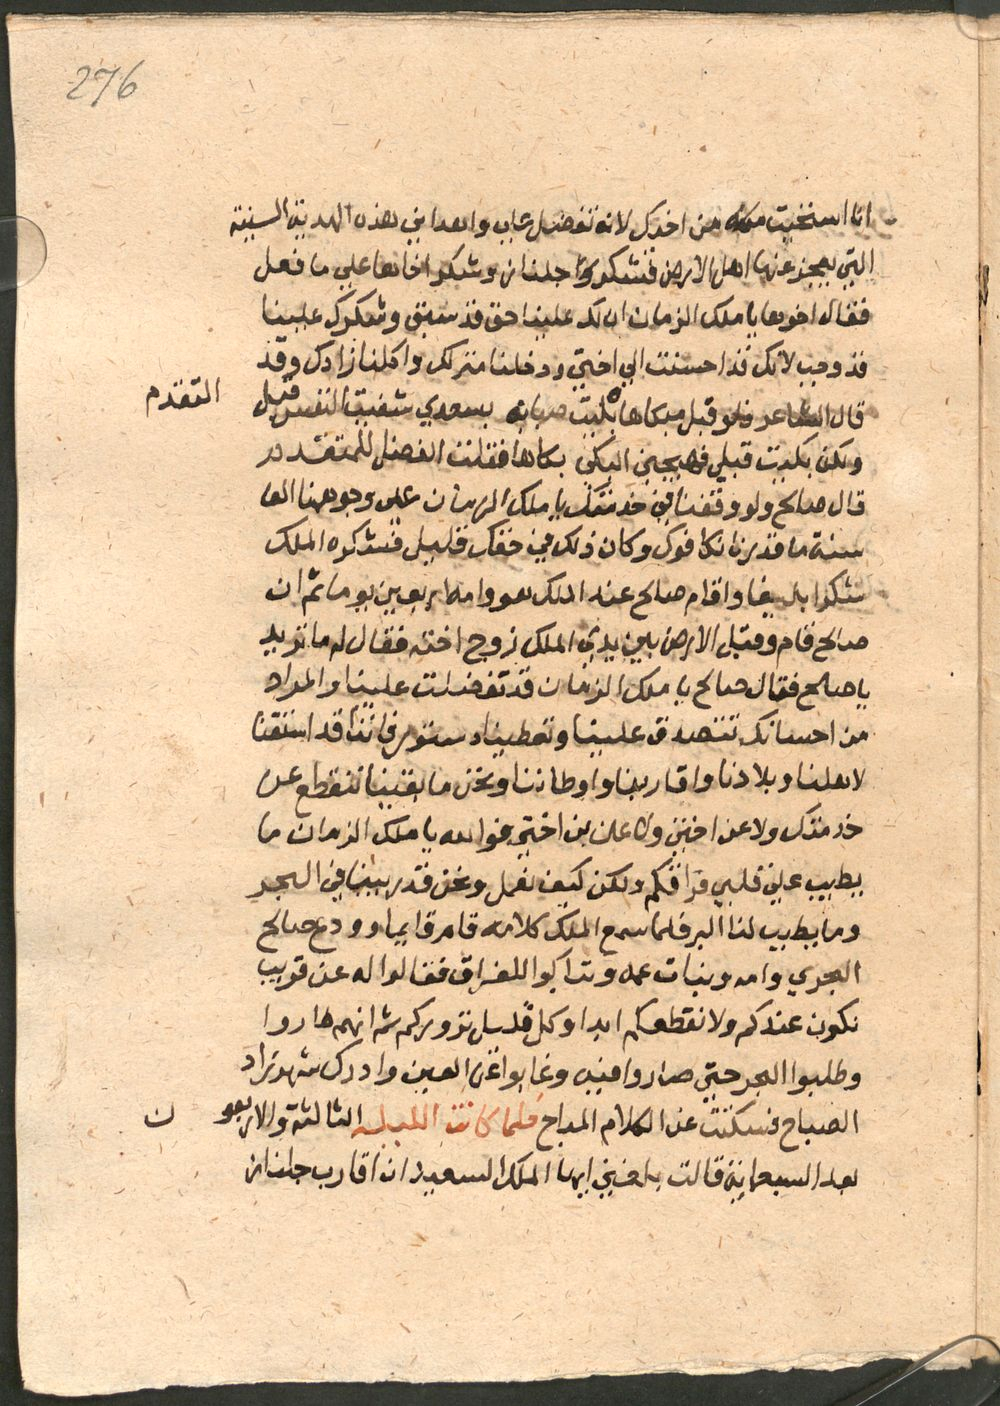 276
انا استحيت منه من اخوك لانه تفضل علي واهداني بهذه الهدية السنية
التي يعجز عنها اهل الارض فشكرته جلناز وشكرا خاها علي ما فعل
فقال اخوها يا ملك الزمان ان لك علينا حق قد سبق وشكرك علينا
قد وجب لانك قد احسنت الي اختي ودخلنا منزلك واكلنا زادك وقد
قال الشاعر فلو قبل مبكاها بكيت صبابة بسعدي شفيت النفس قبل
التقدم
ولكن بكيت قبلي فهيجني البكي بكاها فقلت الفضل للمتقدم
قال صالح ولو وقفنا في خدمتك يا ملك الزمان علي وجوهنا الف
سنة ما قدرنا نكافوك وكان ذلك في حقك قليل فشكره الملك
شكرا بليغا واقام صالح عند الملك هو وامه اربعين يوما ثم ان
صالح قام وقبل الارض بين يدي الملك زوج اخته فقال له ما تريد
يا صالح فقال صالح يا ملك الزمان قد تفضلت علينا والمراد
من احسانك تتصدق علينا وتعطينا دستور فاننا قد اشتقنا
لاهلنا وبلادنا واقاربنا واوطاننا ونحن ما بقينا ننقطع عن
خدمتك ولا عن اختي ولا عن بن اختي فوالله يا ملك الزمان ما
يطيب علي قلبي فراقكم ولكن كيف نعمل ونحن قد ربينا في البحر
وما يطيب لنا البر فلما سمع الملك كلامه قام قايما وودع صالح
البحري وامه وبنات عمه وتباكوا للفراق فقالوا له عن قريب
نكون عندكم ولا نقطعكم ابدا وكل قليل نزوركم ثم انهم طاروا
وطلبوا البحر حتي صاروا فيه وغابوا عن العين وادرك شهرزاد
الصباح فسكتت عن الكلام المباح فلما كانت الليلة الثالثة والاربعون
بعد السبعماية قالت بلغني ايها الملك السعيد ان اقارب جلناز